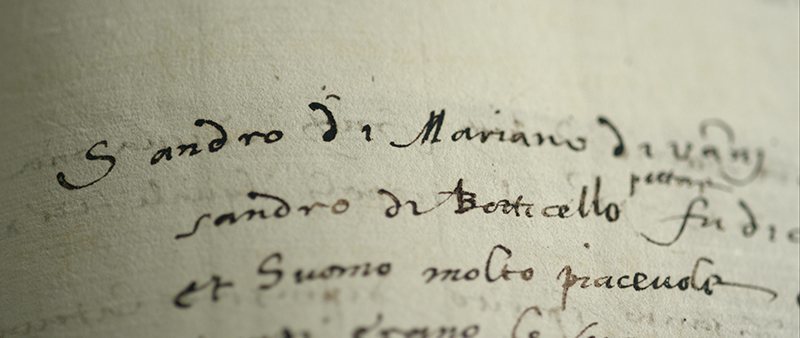 Sandro di Mariano di vanj
sandro di Botticello pittore fu di
et Suomo molto piacevole